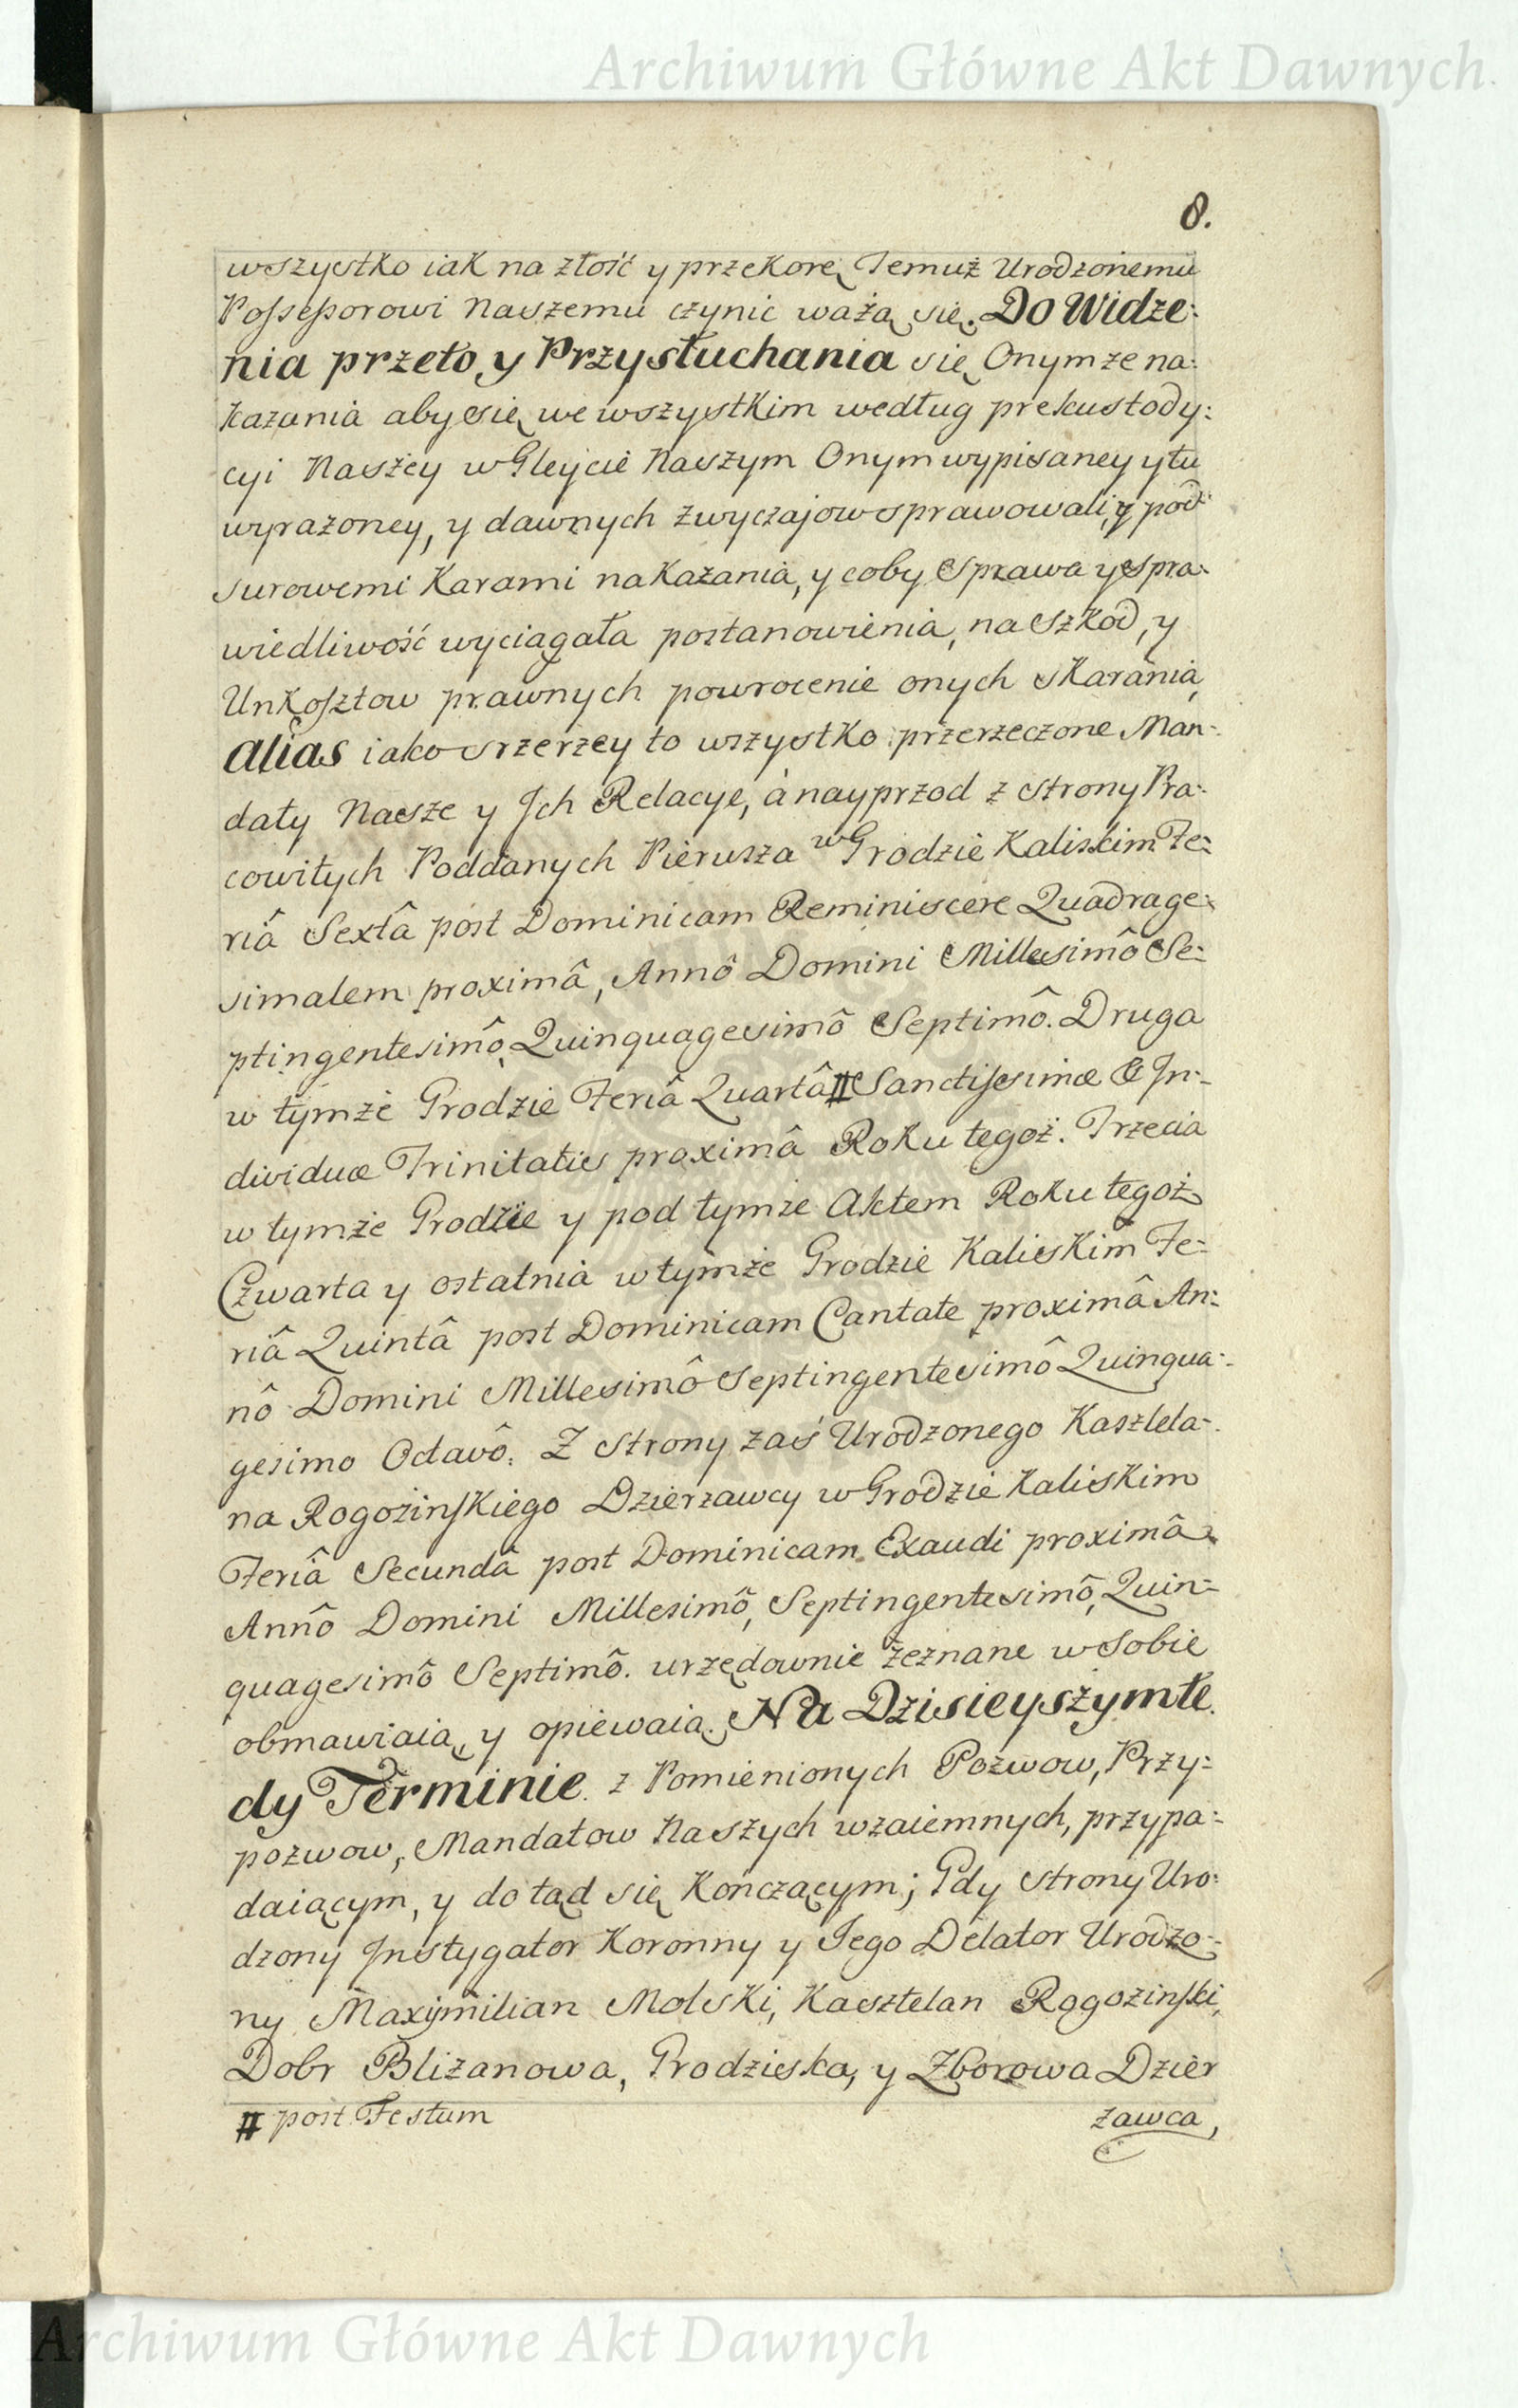 Archiwum Główne Akt Dawnych
8.
wszystko iak na złość y przekorę Temuż Urodzonemu
Possessorowi Naszemu czynić ważą się. Do Widze:
nia przeto, y Przysłuchania się Onymże na:
kazania aby się we wszystkim według prekustody:
cyi Naszey w Gleycie Naszym Onym wypisaney y tu
wyrażoney, y dawnych zwyczajow sprawowali, y pod
surowemi Karami nakazania, y coby Sprawa y Spra:
wiedliwość wyciągała postanowienia, na Szkod, y
Unkosztow prawnych powrocenie onych skarania,
alias iako szerzey to wszystko przerzeczone Man:
daty Nasze y Ich Relacye, à nayprzod z strony Pra:
cowitych Poddanych Pierwsza w Grodzie Kaliskim Fe:
riâ Sextâ post Dominicam Reminiscere Quadrage:
simalem proximâ, Annô Domini Millesimô Se:
ptingentesimô Quinquagesimô Septimô. Druga
w tymże Grodzie Feriâ Quartâ # Sanctissimæ & In:
dividuæ Trinitatis proximâ Roku tegoż. Trzecia
w tymże Grodzie y pod tymże Aktem Roku tegoż
Czwarta y ostatnia w tymże Grodzie Kaliskim Fe:
riâ Quintâ post Dominicam Cantate proximâ An:
nô Domini Millesimô Septingentesimô Quinqua:
gesimo Octavô. Z Strony zaś Urodzonego Kasztela:
na Rogozinskiego Dzierzawcy w Grodzie Kaliskim
Feriâ Secundâ post Dominicam Exaudi proximâ
Annô Domini Millesimô, Septingentesimô, Quin:
quagesimô Septimô. urzędownie zeznane w Sobie
obmawiaią, y opiewaią. Na Dzisieyszym te
dy Terminie. z Pomienionych Pozwow, Przy:
pozwow, Mandatow Naszych wzaiemnych, przypa:
daiącym, y do tąd się Kończącym; Gdy strony Uro:
dzony Instygator Koronny y Jego Delator Urodzo:
ny Maxymilian Molski, Kasztelan Rogozinski,
Dobr Blizanowa, Grodziska, y Zborowa Dzier
# post Festum
zawca,
Archiwum Główne Akt Dawnych